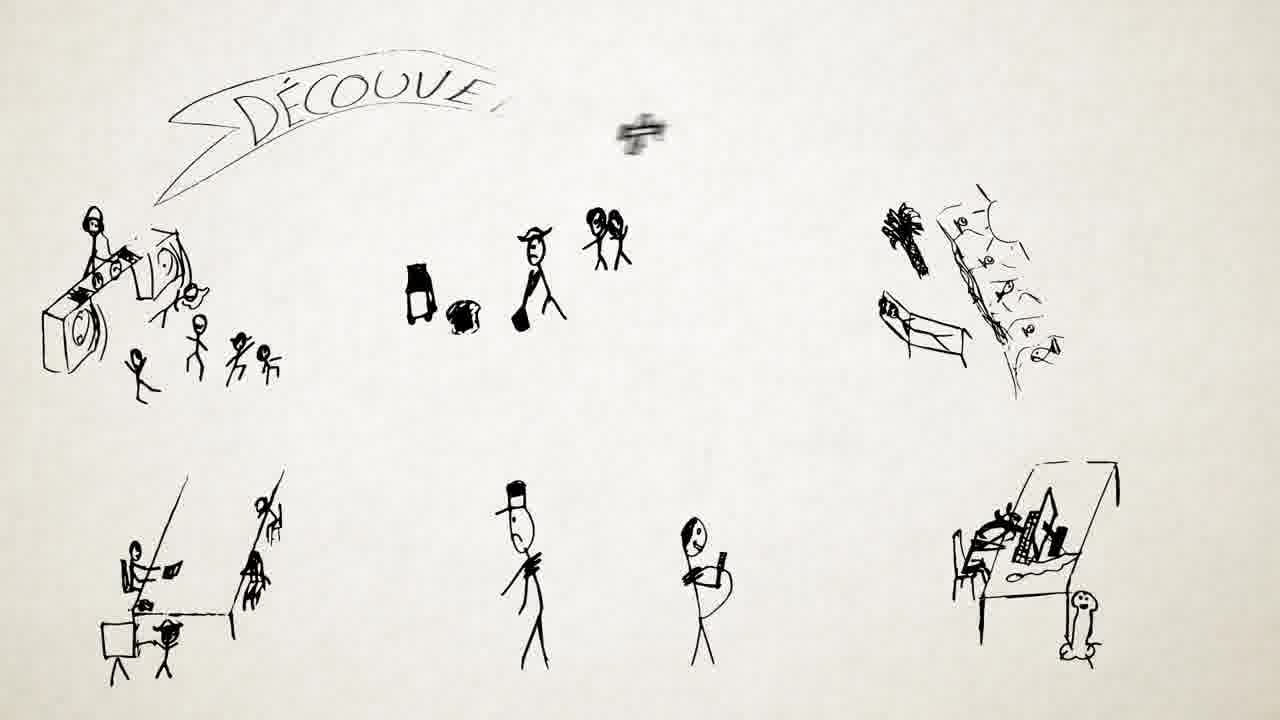 DÉCOUVE